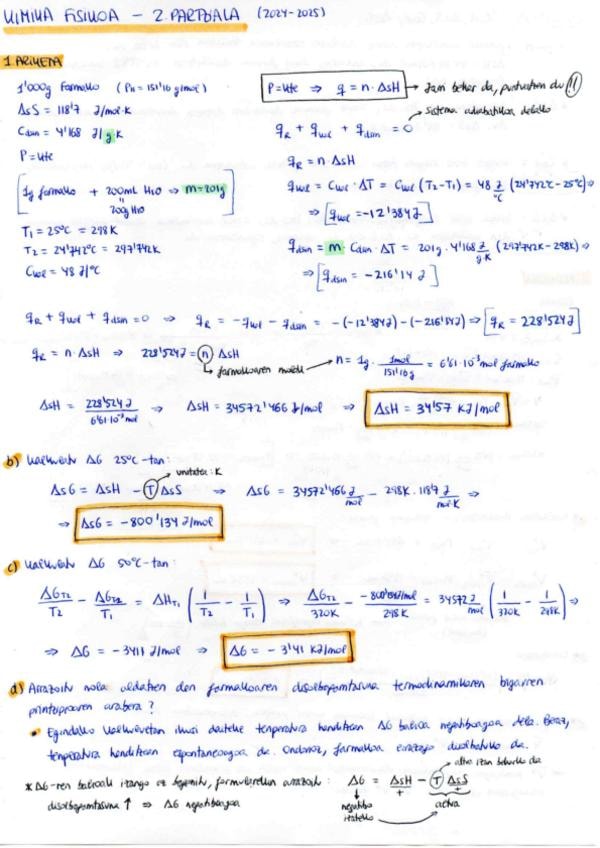 KIMIKA FISIKOA - 2. PARTZIALA (2024-2025)
1. ARIKETA
1'000g Farmako (Pn = 151'16 g/mol)
ΔsS = 118'7 J/mol·K
Cdisn = 4'168 J/g·K
P = kte
[1g farmako + 200mL H2O ⇒ m=201g]
200g H2O
T1 = 25ºC = 298K
T2 = 24'742ºC = 297'742K
Ckal = 48 J/ºC
P=kte ⇒ q = n·ΔsH → Jarri behar da, puntuatzen du!!
qR + qkal + qdisn = 0 → Sistema adiabatikoa delako
qR = n ΔsH
qkal = Ckal · ΔT = Ckal (T2-T1) = 48 J/ºC (24'742ºC - 25ºC) ⇒
⇒ [qkal = -12'384J]
qdisn = m · Cdisn · ΔT = 201g · 4'168 J/gK (297'742K - 298K) ⇒
⇒ [qdisn = -216'14 J]
qR + qkal + qdisn = 0 ⇒ qR = -qkal - qdisn = -(-12'384J) - (-216'14J) ⇒ [qR = 228'524J]
qR = n·ΔsH ⇒ 228'524J = n ΔsH
farmakoaren molak → n = 1g · 1mol / 151'16g = 6'61·10⁻³ mol farmako
ΔsH = 228'524J / 6'61·10⁻³ mol ⇒ ΔsH = 34572'466 J/mol ⇒ ΔsH = 34'57 KJ/mol
b) Kalkulatu ΔG 25ºC-tan:
unitatea: K
ΔsG = ΔsH - T ΔsS ⇒ ΔsG = 34572'466 J/mol - 298K · 118'7 J/mol·K ⇒
⇒ ΔsG = -800'134 J/mol
c) Kalkulatu ΔG 50ºC-tan:
ΔGT2/T2 - ΔGT1/T1 = ΔHT1 (1/T2 - 1/T1) ⇒ ΔGT2/320K - -800'134 J/mol/298K = 34572 J/mol (1/320K - 1/298K) ⇒
⇒ ΔG = -3411 J/mol ⇒ ΔG = -3'41 KJ/mol
d) Arrazoitu nola aldatzen den farmakoaren disolbagarritasuna termodinamikaren bigarren
printzipioaren arabera?
• Egindako kalkuluetan ikusi daiteke tenperatura handitzean ΔG balioa negatiboagoa dela. Beraz,
tenperatura handitzean espontaneoagoa da. Ondorioz, farmakoa errazago disolbatuko da.
* ΔG-ren balioak izango ez bagenitu, formularekin arrazoitu: ΔG = ΔsH - T ΔsS
disolbagarritasuna ↑ ⇒ ΔG negatiboagoa
altua izan beharko da
+ +
negatibo izateko
altua